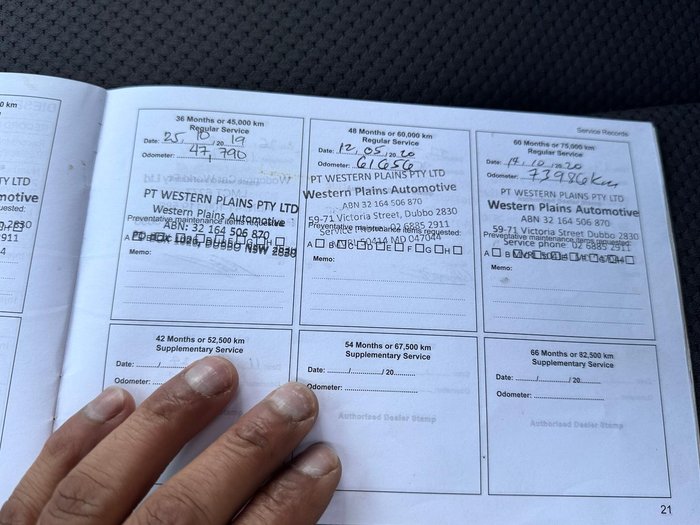 0 km
TY LTD
motive
uested:
2830
2911
Service Records
36 Months or 45,000 km
Regular Service
Date: 25, 10 / 20 19
Odometer: 47, 790
PT WESTERN PLAINS PTY LTD
Western Plains Automotive
ABN: 32 164 506 870
Preventative maintenance items requested:
PO BOX 1826, DUBBO NSW 2830
Memo:
48 Months or 60,000 km
Regular Service
Date: 12, 05, / 20 20
Odometer: 61656
PT WESTERN PLAINS PTY LTD
Western Plains Automotive
ABN 32 164 506 870
59-71 Victoria Street, Dubbo 2830
Service Phone: 02 6885 2911
Preventative maintenance items requested:
A B C D E F G H
Memo:
60 Months or 75,000 km
Regular Service
Date: 14, 10, 2020
Odometer: 73986km
PT WESTERN PLAINS PTY LTD
Western Plains Automotive
ABN: 32 164 506 870
59-71 Victoria Street Dubbo 2830
Preventative maintenance items requested:
Service phone 02 6885 2911
Memo:
42 Months or 52,500 km
Supplementary Service
Date: / / 20
Odometer:
54 Months or 67,500 km
Supplementary Service
Date: / / 20
Odometer:
Authorised Dealer Stamp
66 Months or 82,500 km
Supplementary Service
Date: / / 20
Odometer:
Authorised Dealer Stamp
21